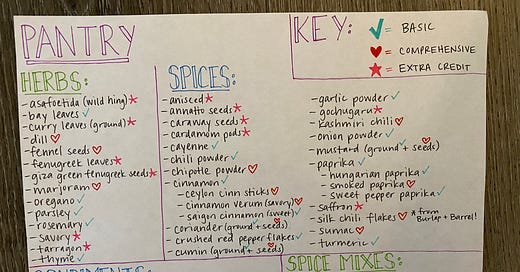 PANTRY
KEY:
✓ = BASIC
♥ = COMPREHENSIVE
★ = EXTRA CREDIT
HERBS:
- asafoetida (wild hing) ★
- bay leaves ✓
- curry leaves (ground) ★
- dill ♡
- fennel seeds ♡
- fenugreek leaves ★
- giza green fenugreek seeds ★
- marjoram ♡
- oregano ✓
- parsley ✓
- rosemary ✓
- savory ★
- tarragon ★
- thyme ✓
SPICES:
- aniseed ★
- annatto seeds ★
- caraway seeds ★
- cardamom pods ★
- cayenne ✓
- chili powder ✓
- chipotle powder ♡
- cinnamon ✓
- ceylon cinn sticks ♡
- cinnamon verum (savory) ♡
- saigon cinnamon (sweet) ✓
- coriander (ground + seeds) ♡
- crushed red pepper flakes ✓
- cumin (ground + seeds) ♡
- garlic powder ✓
- gochugaru ★
- kashmiri chili ♡
- onion powder ✓
- mustard (ground + seeds) ♡
- paprika ✓
- hungarian paprika ✓
- smoked paprika ♡
- sweet pepper paprika ✓
- saffron ★
- silk chili flakes ♡ * from Burlap + Barrel!
- sumac ♡
- turmeric ✓
CONDIMENTS:
SPICE MIXES: